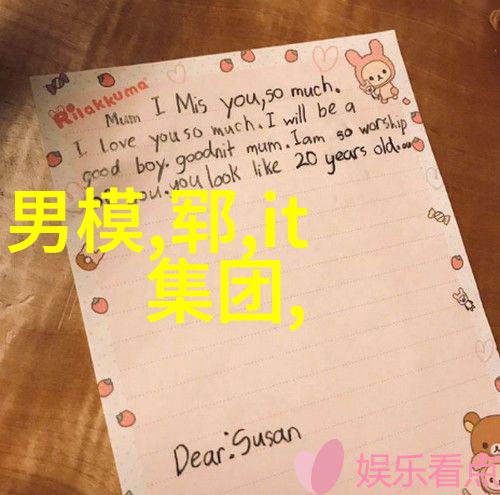 Rilakkuma
Mum I Mis you,so much.
I love you so much.I will be a
good boy.goodnit mum.Iam so worship
you.you look like 20 years old.
男模,郓,it
集团,
Dear:Susan
娱乐看点